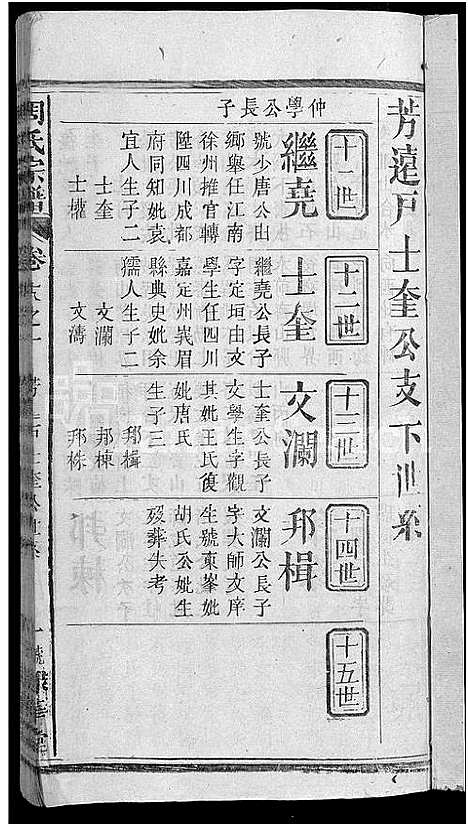 芳遠戶士奎公支下世系
十一世
仲學公長子
繼堯
號少唐公山
鄉舉任江南
徐州推官轉
陞四川成都
府同知妣袁
宜人生子二
士奎
士權
十二世
士奎
繼堯公長子
字定垣由文
學生任四川
嘉定州峩眉
縣典史妣余
孺人生子二
文瀾
文濤
十三世
文瀾
士奎公長子
文學生字觀
其妣王氏復
妣唐氏
生子三
邦楫
邦棟
邦株
十四世
邦楫
文瀾公長子
字大師文庠
生號東峯妣
胡氏公妣生
歿葬失考
十五世
周氏宗譜